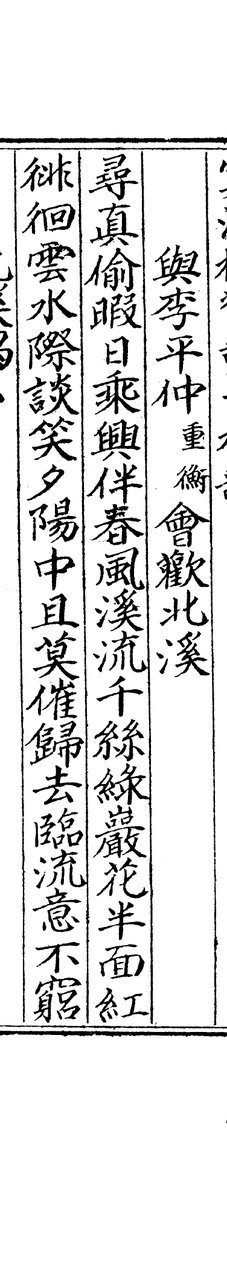 與李平仲重衡會歡北溪
尋真偷暇日乘興伴春風溪流千絲綠巖花半面紅
徘徊雲水際談笑夕陽中且莫催歸去臨流意不窮